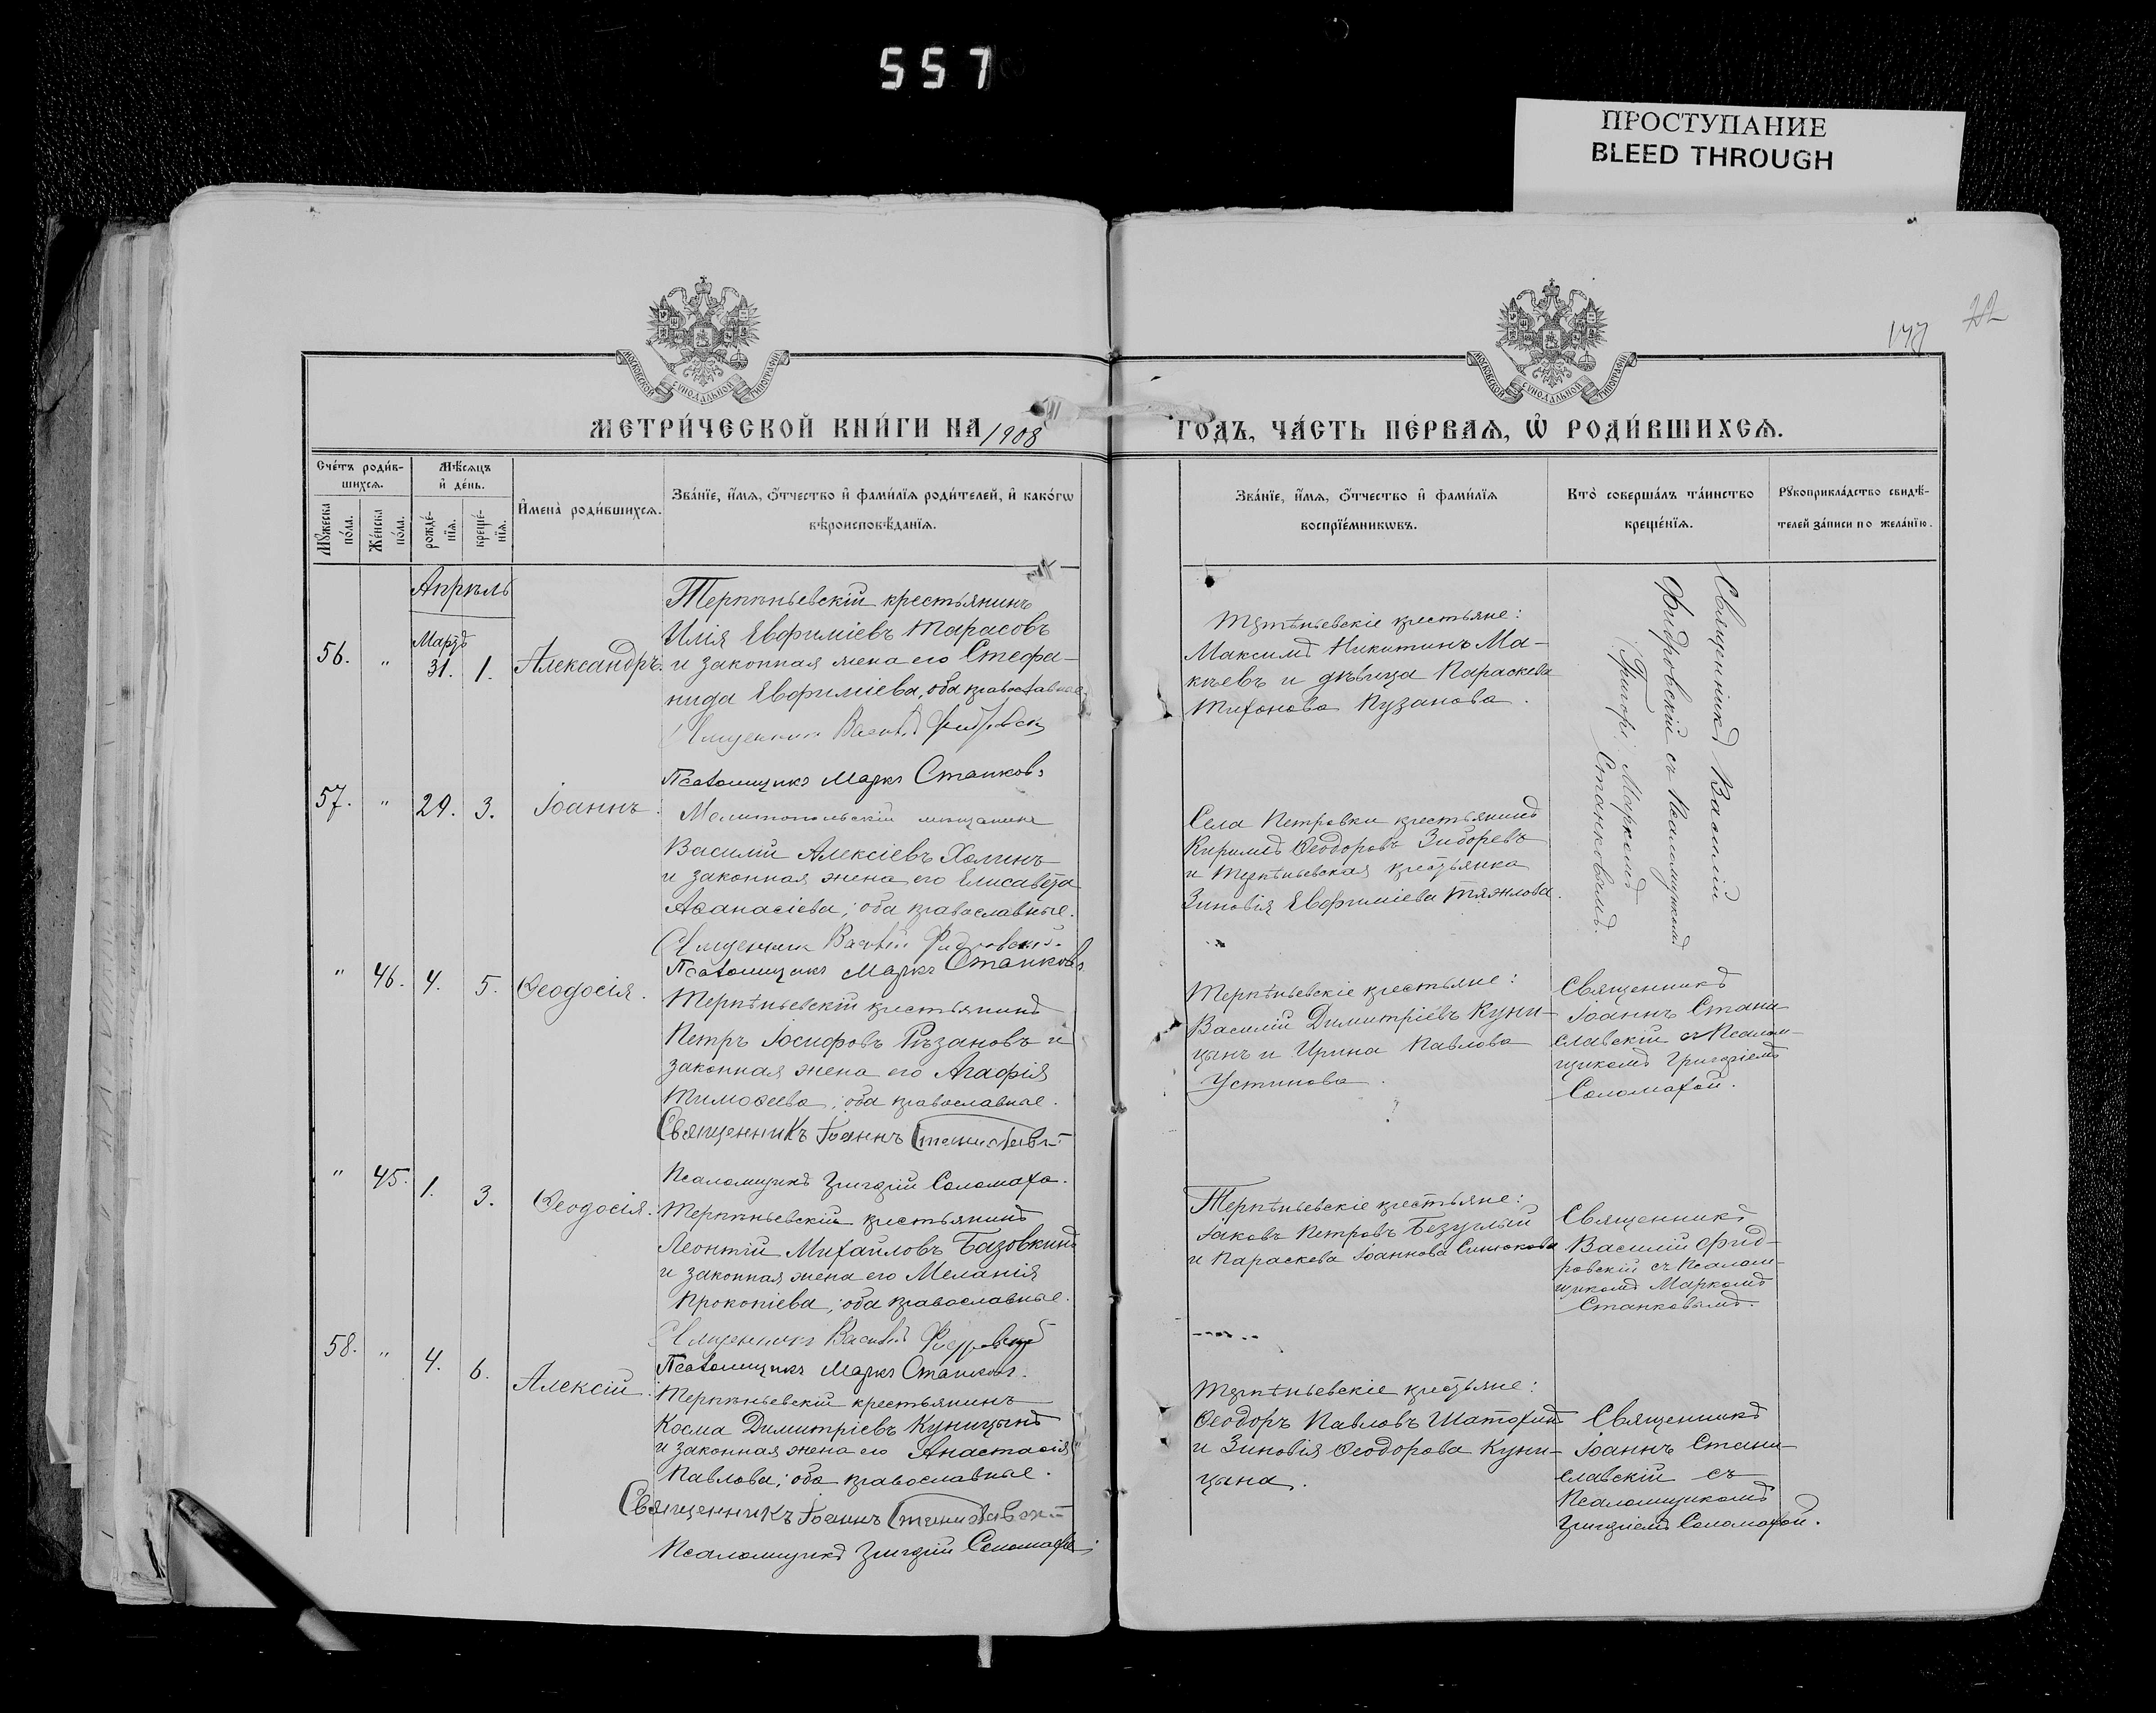 557
ПРОСТУПАНИЕ
BLEED THROUGH
22
177
МОСКОВСКОЙ СУНОДАЛЬНОЙ ТИПОГРАФІИ
МОСКОВСКОЙ СУНОДАЛЬНОЙ ТИПОГРАФІИ
МЕТРИ́ЧЕСКОЙ КНИ́ГИ НА 1908 ГОДЪ, ЧА́СТЬ ПЕ́РВАѦ, Ѡ҆ РОДИ́ВШИХСѦ.
Сче́тъ роди́в-
шихсѧ.
Мꙋ́жеска по́ла.
Же́нска по́ла.
Мѣ́сѧцъ
и҆ де́нь.
рожде́-
нїѧ.
креще́-
нїѧ.
И҆мена̀ роди́вшихсѧ.
Зва́нїе, и҆́мѧ, ѻ҆́тчество и҆ фами́лїѧ роди́телей, и҆ како́гѡ
вѣроисповѣ́данїѧ.
Зва́нїе, и҆́мѧ, ѻ҆́тчество и҆ фами́лїѧ
воспрїе́мникѡвъ.
Кто̀ соверша́лъ та́инство
креще́нїѧ.
Рꙋкоприкла́дство свидѣ́-
телей за́писи по жела́нїю.
Апрѣль
Мартъ
56. " 31. 1. Александръ.
Терпѣньевскій крестьянинъ
Илія Евфиміевъ Тарасовъ
и законная жена его Стефа-
нида Евфиміева, оба православные.
Священникъ Василій Фидровскій
Псаломщикъ Маркъ Станковъ
Терпѣньевскіе крестьяне:
Максимъ Никитинъ Ма-
кѣевъ и дѣвица Параскева
Тихонова Пузанова.
Священникъ Василій
Фидровскій съ Псаломщикомъ
Маркомъ
Станковымъ.
57. " 29. 3. Іоаннъ.
Мелитопольскій мѣщанинъ
Василій Алексіевъ Холинъ
и законная жена его Елисавета
Аѳанасіева; оба православные.
Священникъ Василій Фидровскій.
Псаломщикъ Маркъ Станковъ
Села Петровки крестьянинъ
Кириллъ Ѳеодоровъ Зиборевъ
и Терпѣньевская крестьянка
Зиновія Евфиміева Тяжлова.
" 46. 4. 5. Ѳеодосія.
Терпѣньевскій крестьянинъ
Петръ Іосифовъ Рѣзановъ и
законная жена его Агафія
Тимоѳеева; оба православные.
Священникъ Іоаннъ Станиславскій
Псаломщикъ Григорій Соломаха.
Терпѣньевскіе крестьяне:
Василій Димитріевъ Куни-
цынъ и Ирина Павлова
Устинова.
Священникъ
Іоаннъ Стани-
славскій съ Псалом-
щикомъ Григоріемъ
Соломахой.
" 45. 1. 3. Ѳеодосія.
Терпѣньевскій крестьянинъ
Леонтій Михайловъ Базовкинъ
и законная жена его Меланія
Прокопіева; оба православные.
Священникъ Василій Фидровскій
Псаломщикъ Маркъ Станковъ.
Терпѣньевскіе крестьяне:
Іаковъ Петровъ Безуглый
и Параскева Іоаннова Синюкова
Священникъ
Василій Фид-
ровскій съ Псалом-
щикомъ Маркомъ
Станковымъ.
58. " 4. 6. Алексій.
Терпѣньевскій крестьянинъ
Косма Димитріевъ Куницынъ
и законная жена его Анастасія
Павлова; оба православные.
Священникъ Іоаннъ Станиславскій
Псаломщикъ Григорій Соломаха
Терпѣньевскіе крестьяне:
Ѳеодоръ Павловъ Шатохинъ
и Зиновія Ѳеодорова Куни-
цына.
Священникъ
Іоаннъ Стани-
славскій съ
Псаломщикомъ
Григоріемъ Соломахой.